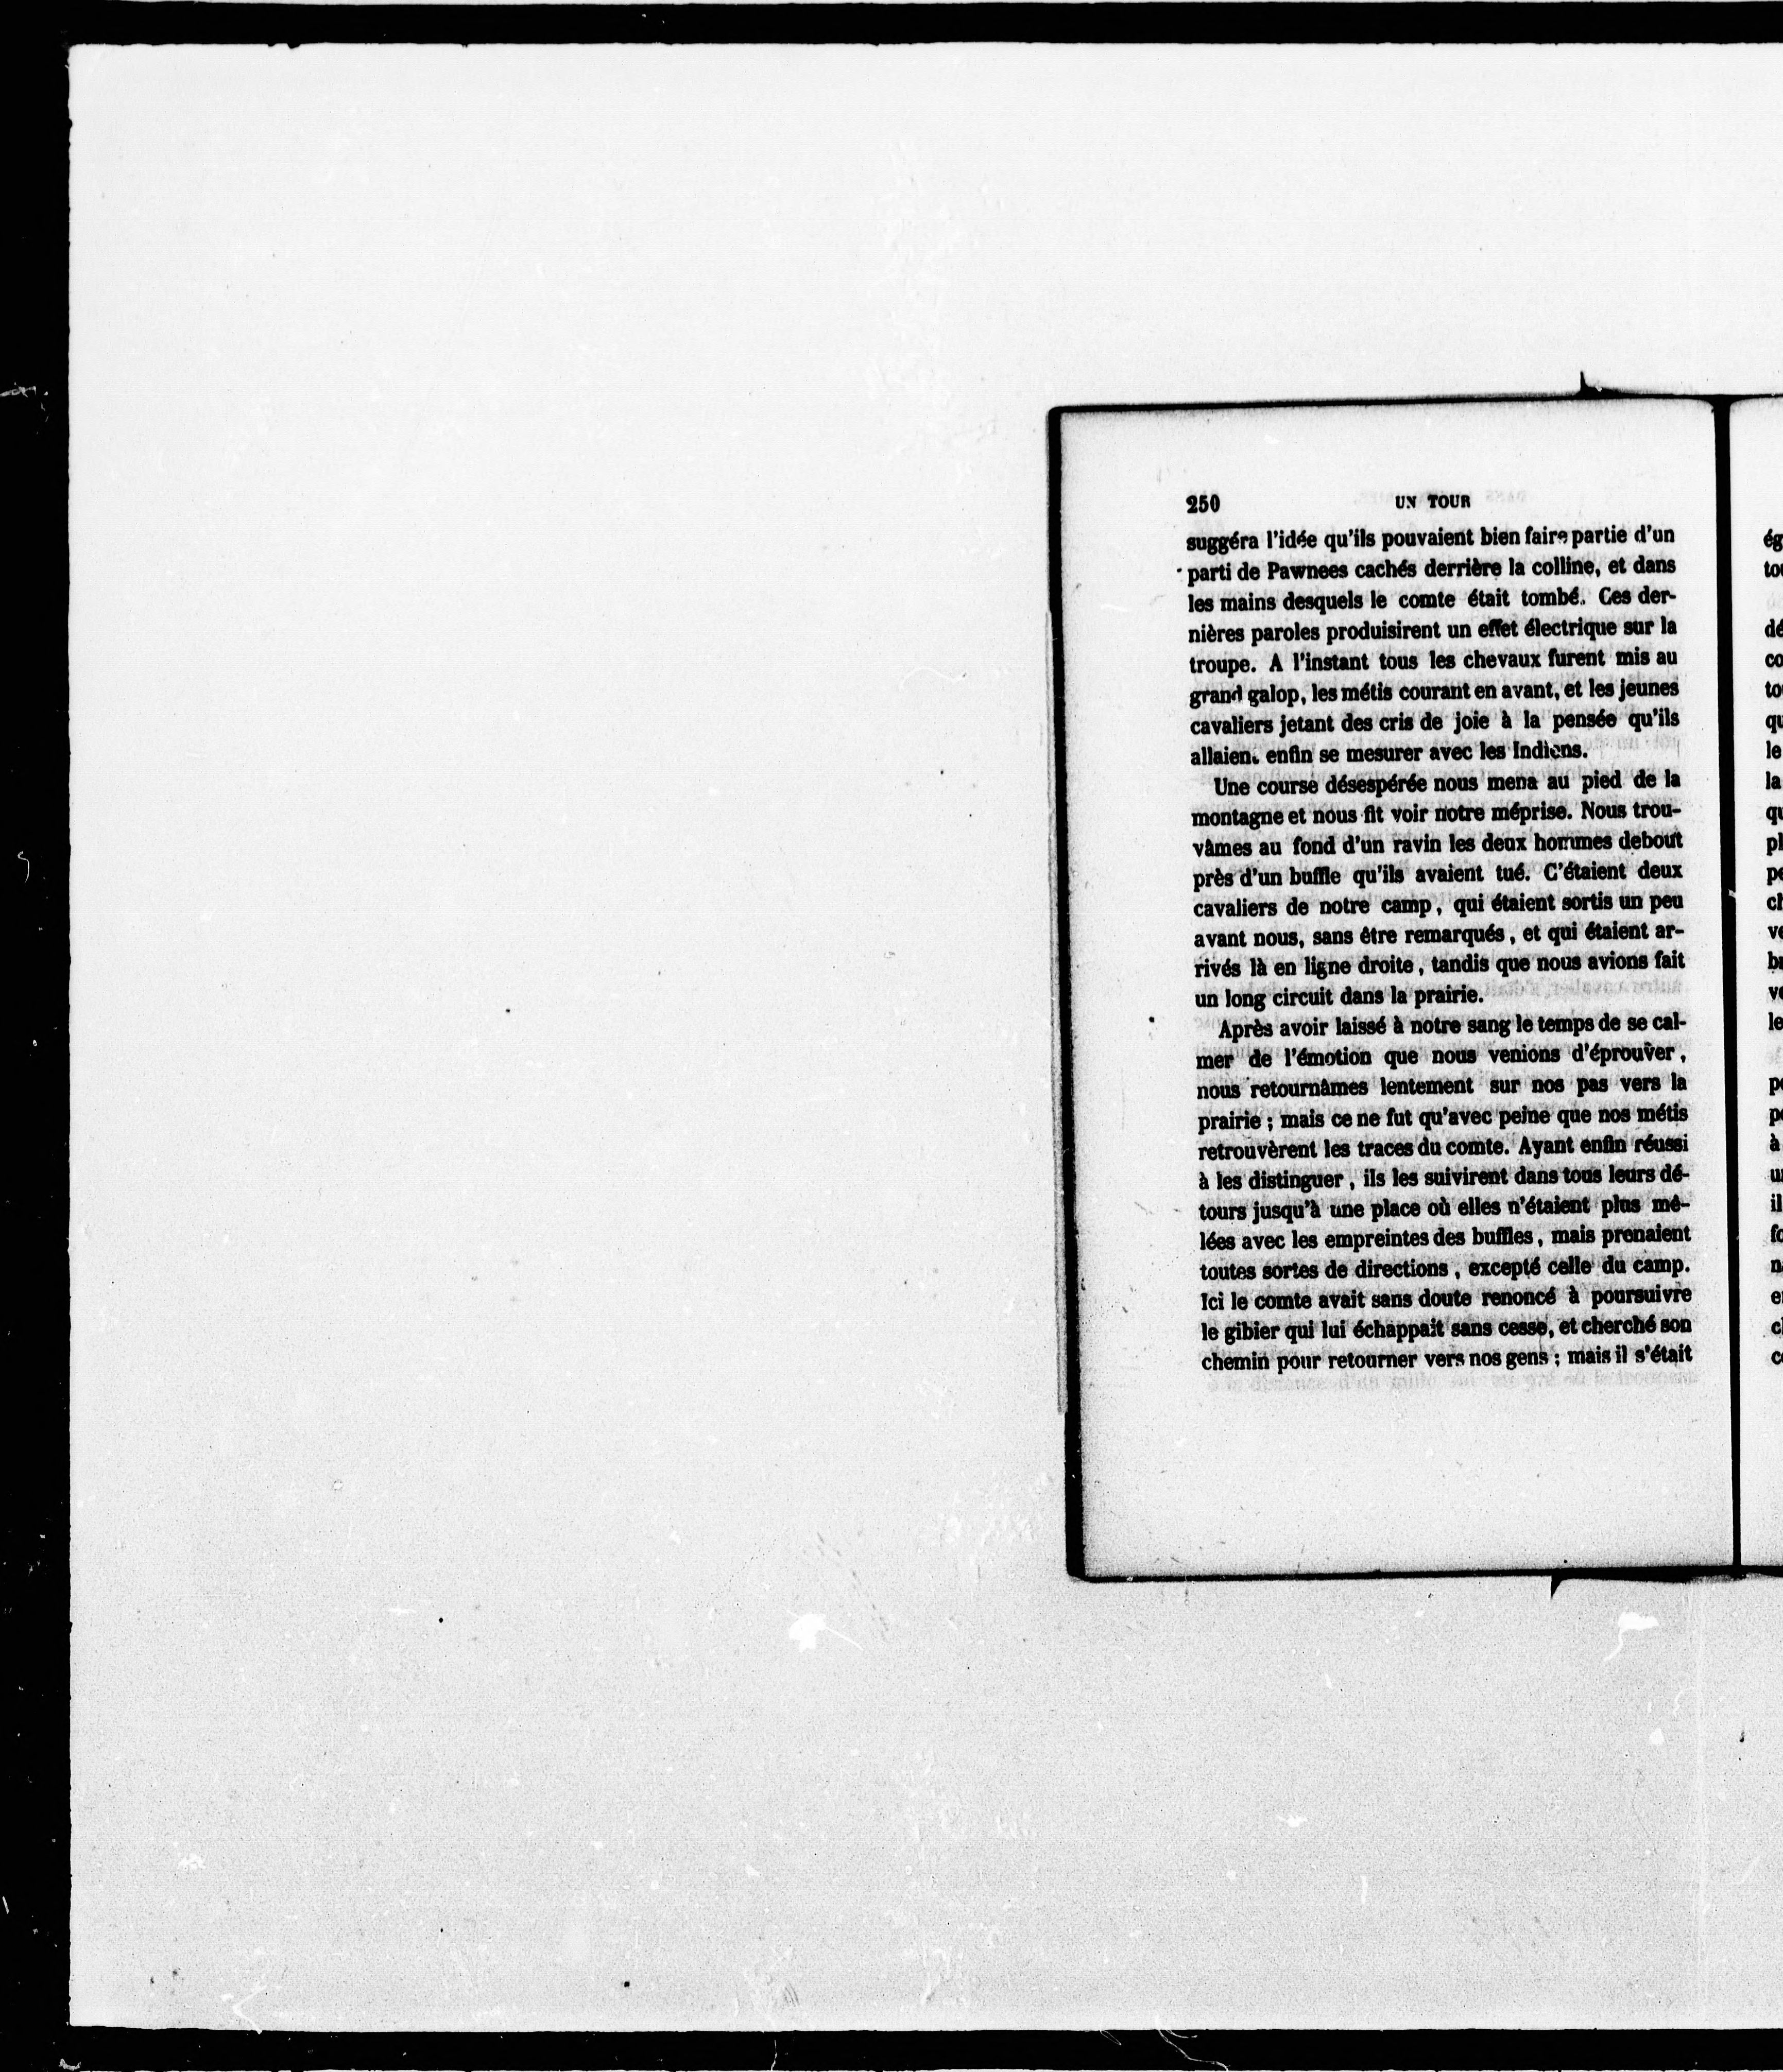 250 UN TOUR
suggéra l'idée qu'ils pouvaient bien faire partie d'un
parti de Pawnees cachés derrière la colline, et dans
les mains desquels le comte était tombé. Ces der-
nières paroles produisirent un effet électrique sur la
troupe. A l'instant tous les chevaux furent mis au
grand galop, les métis courant en avant, et les jeunes
cavaliers jetant des cris de joie à la pensée qu'ils
allaien. enfin se mesurer avec les Indiens.
Une course désespérée nous mena au pied de la
montagne et nous fit voir notre méprise. Nous trou-
vâmes au fond d'un ravin les deux hommes debout
près d'un buffle qu'ils avaient tué. C'étaient deux
cavaliers de notre camp, qui étaient sortis un peu
avant nous, sans être remarqués, et qui étaient ar-
rivés là en ligne droite, tandis que nous avions fait
un long circuit dans la prairie.
Après avoir laissé à notre sang le temps de se cal-
mer de l'émotion que nous venions d'éprouver,
nous retournâmes lentement sur nos pas vers la
prairie ; mais ce ne fut qu'avec peine que nos métis
retrouvèrent les traces du comte. Ayant enfin réussi
à les distinguer, ils les suivirent dans tous leurs dé-
tours jusqu'à une place où elles n'étaient plus mê-
lées avec les empreintes des buffles, mais prenaient
toutes sortes de directions, excepté celle du camp.
Ici le comte avait sans doute renoncé à poursuivre
le gibier qui lui échappait sans cesse, et cherché son
chemin pour retourner vers nos gens ; mais il s'était